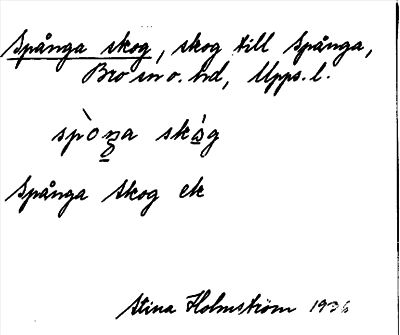 Spånga skog, skog till Spånga,
Bro sn o. hd, Upps. l.
spòŋa skóg
Spånga skog ek
Stina Holmström 1936